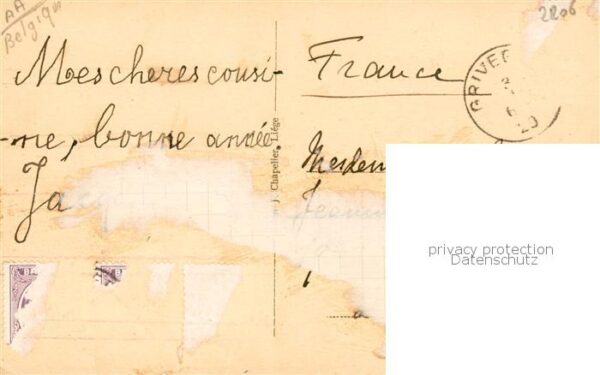 AA
Belgique
2206
Mes cheres cousi-
-ne, bonne année
Ja
J. Chapelier, Liége
France
GRIVE
20
privacy protection
Datenschutz